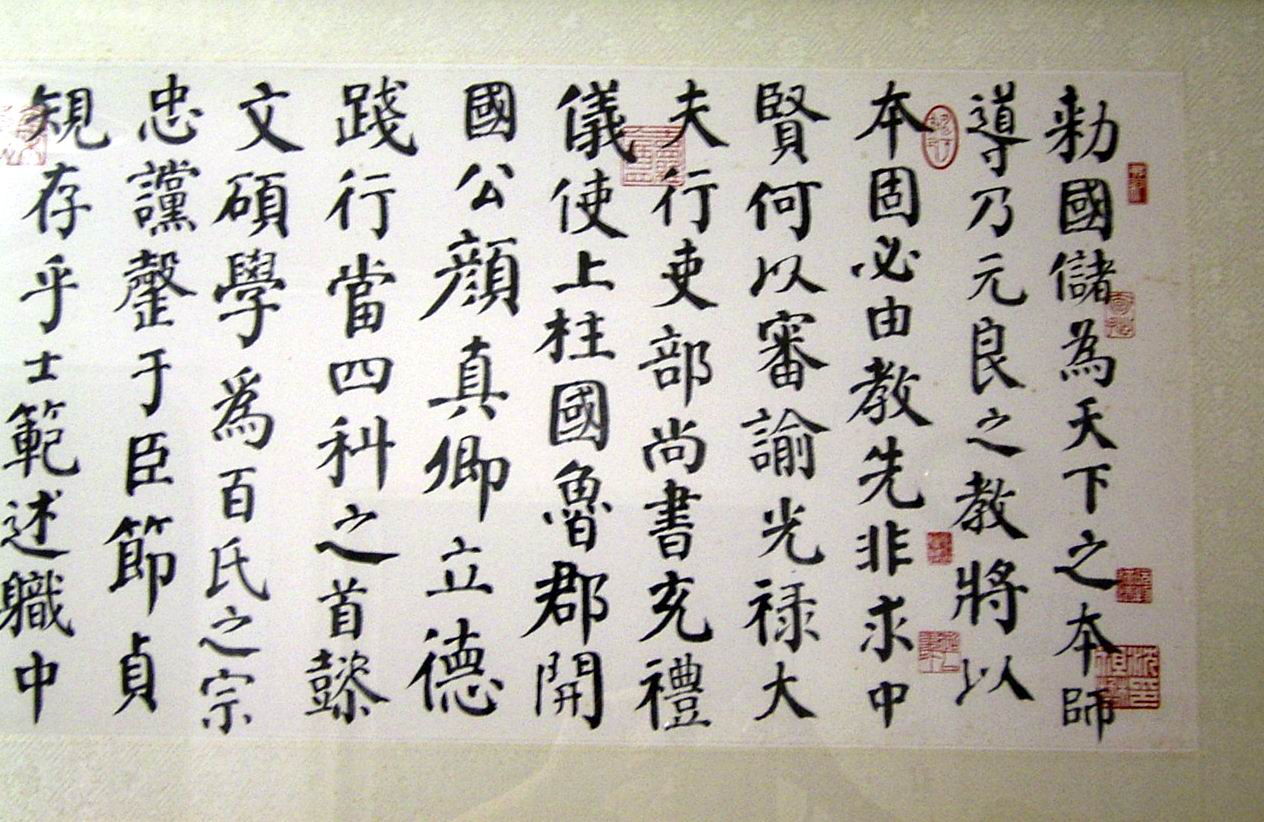 勑國儲為天下之本師
導乃元良之教將以
本固必由教先非求中
賢何以審諭光禄大
夫行吏部尚書充禮
儀使上柱國魯郡開
國公顏真卿立德
踐行當四科之首懿
文碩學爲百氏之宗
忠讜罄于臣節貞
規存乎士範述職中